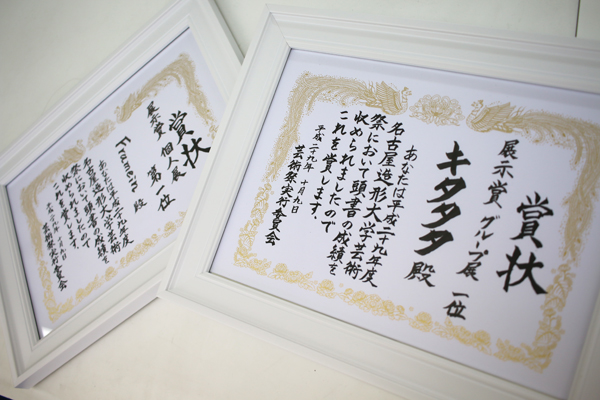 賞状
展示賞 グループ展 一位
キタタタ 殿
あなたは平成二十九年度
名古屋造形大学芸術
祭において頭書の成績を
収められましたので
これを賞します。
平成二十九年十月九日
芸術祭実行委員会
賞状
展示賞 個人展 第一位
殿
あなたは平成二十九年度
名古屋造形大学芸術
祭において頭書の成績を
収められましたので
これを賞します。
芸術祭実行委員会